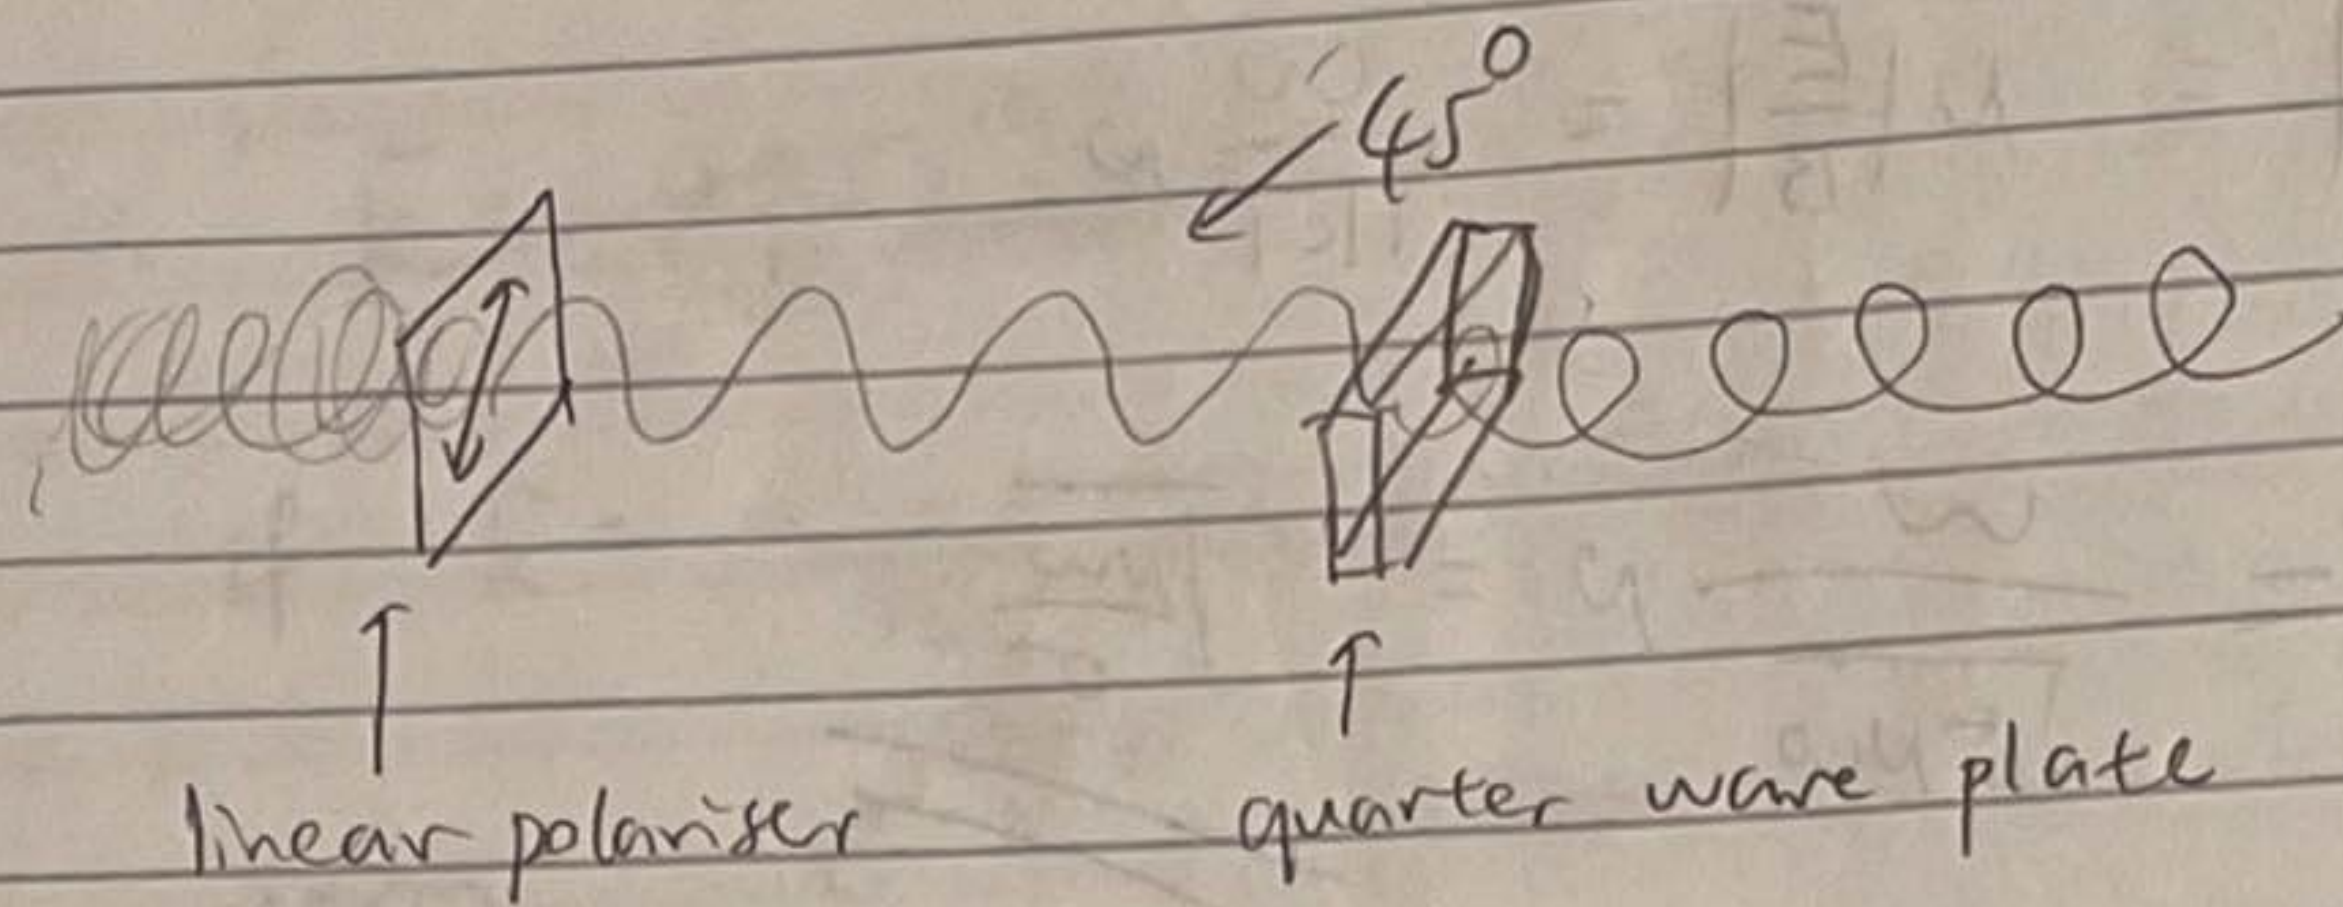 45°
linear polariser
quarter wave plate